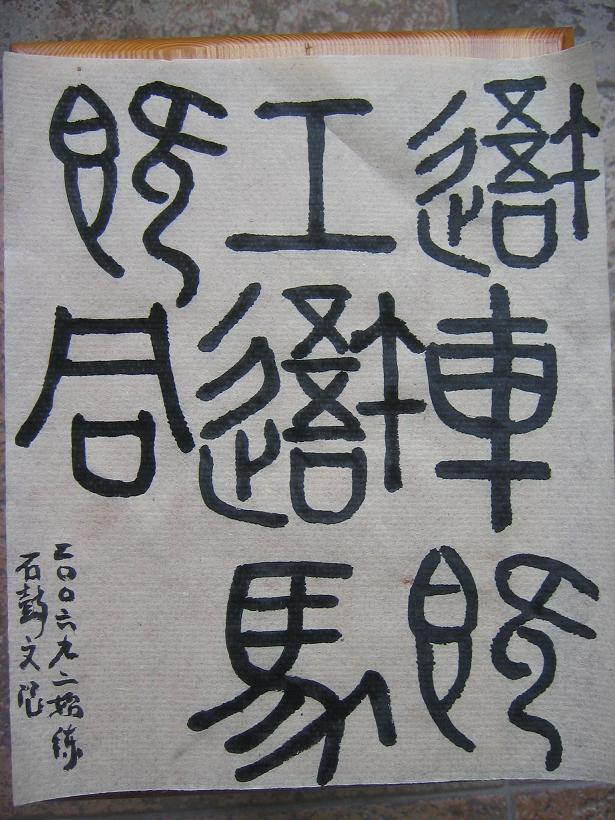 吾車既
工吾馬
既同
二〇〇六九二始练
石鼓文